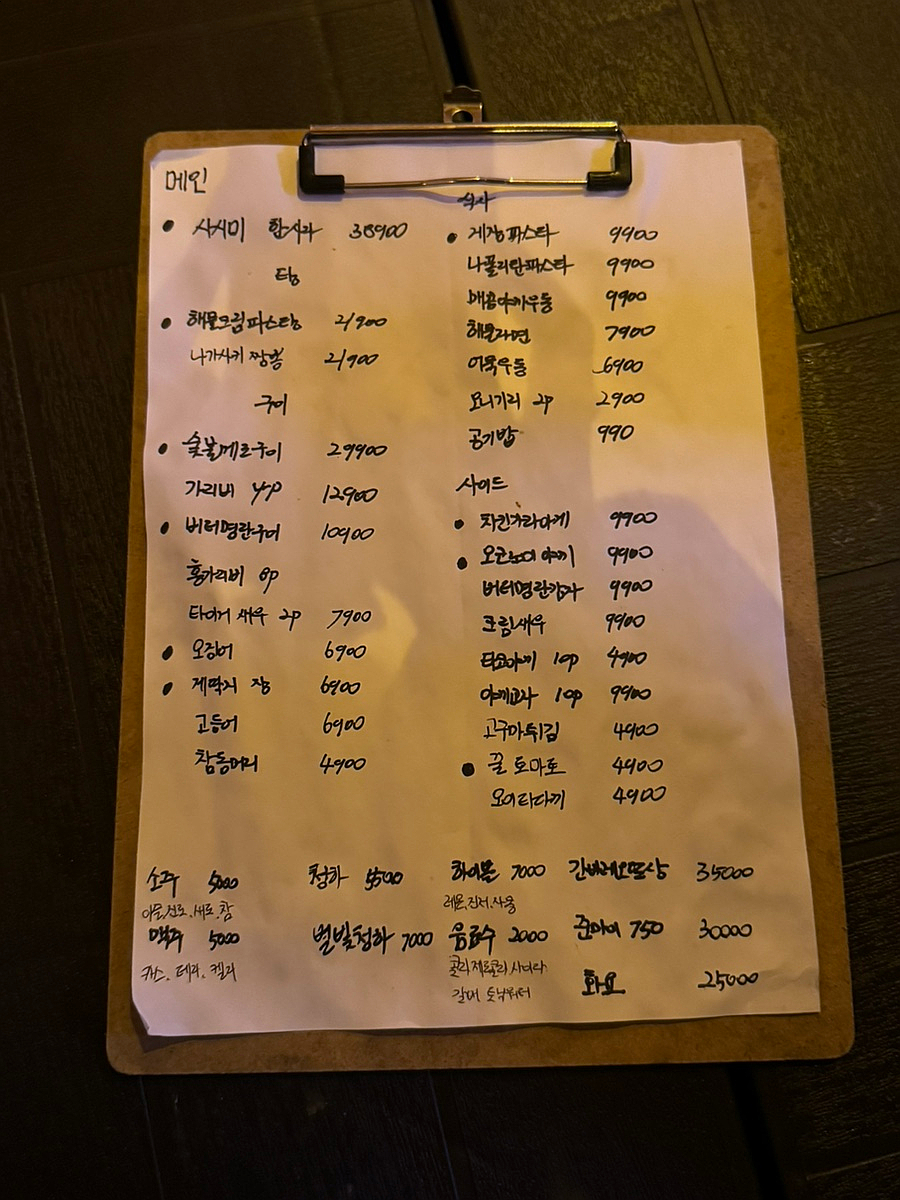 메인
사시미 한사라 38900
탕
해물크림파스탕 21900
나가사키 짬뽕 21900
구이
숯불메로구이 29900
가리비 4p 12900
버터명란구이 10900
홍가리비 8p
타이거 새우 2p 7900
오징어 6900
게딱지 장 6900
고등어 6900
참동머리 4900
식사
게장파스타 9900
나폴리탄파스타 9900
매콤야끼우동 9900
해물라면 7900
어묵우동 6900
오니기리 2p 2900
공기밥 990
사이드
치킨가라아게 9900
오코노미야끼 9900
버터명란감자 9900
크림새우 9900
타코야끼 10p 4900
야끼교자 10p 9900
고구마튀김 4900
꿀 토마토 4900
오이타다끼 4900
소주 5000
이슬.진로.새로.참
맥주 5000
카스. 테라. 켈리
청하 5500
별빛청하 7000
하이볼 7000
레몬.진저.자몽
음료수 2000
콜라 제로콜라 사이다
간바레오또상 35000
준마이 750 30000
화요 25000